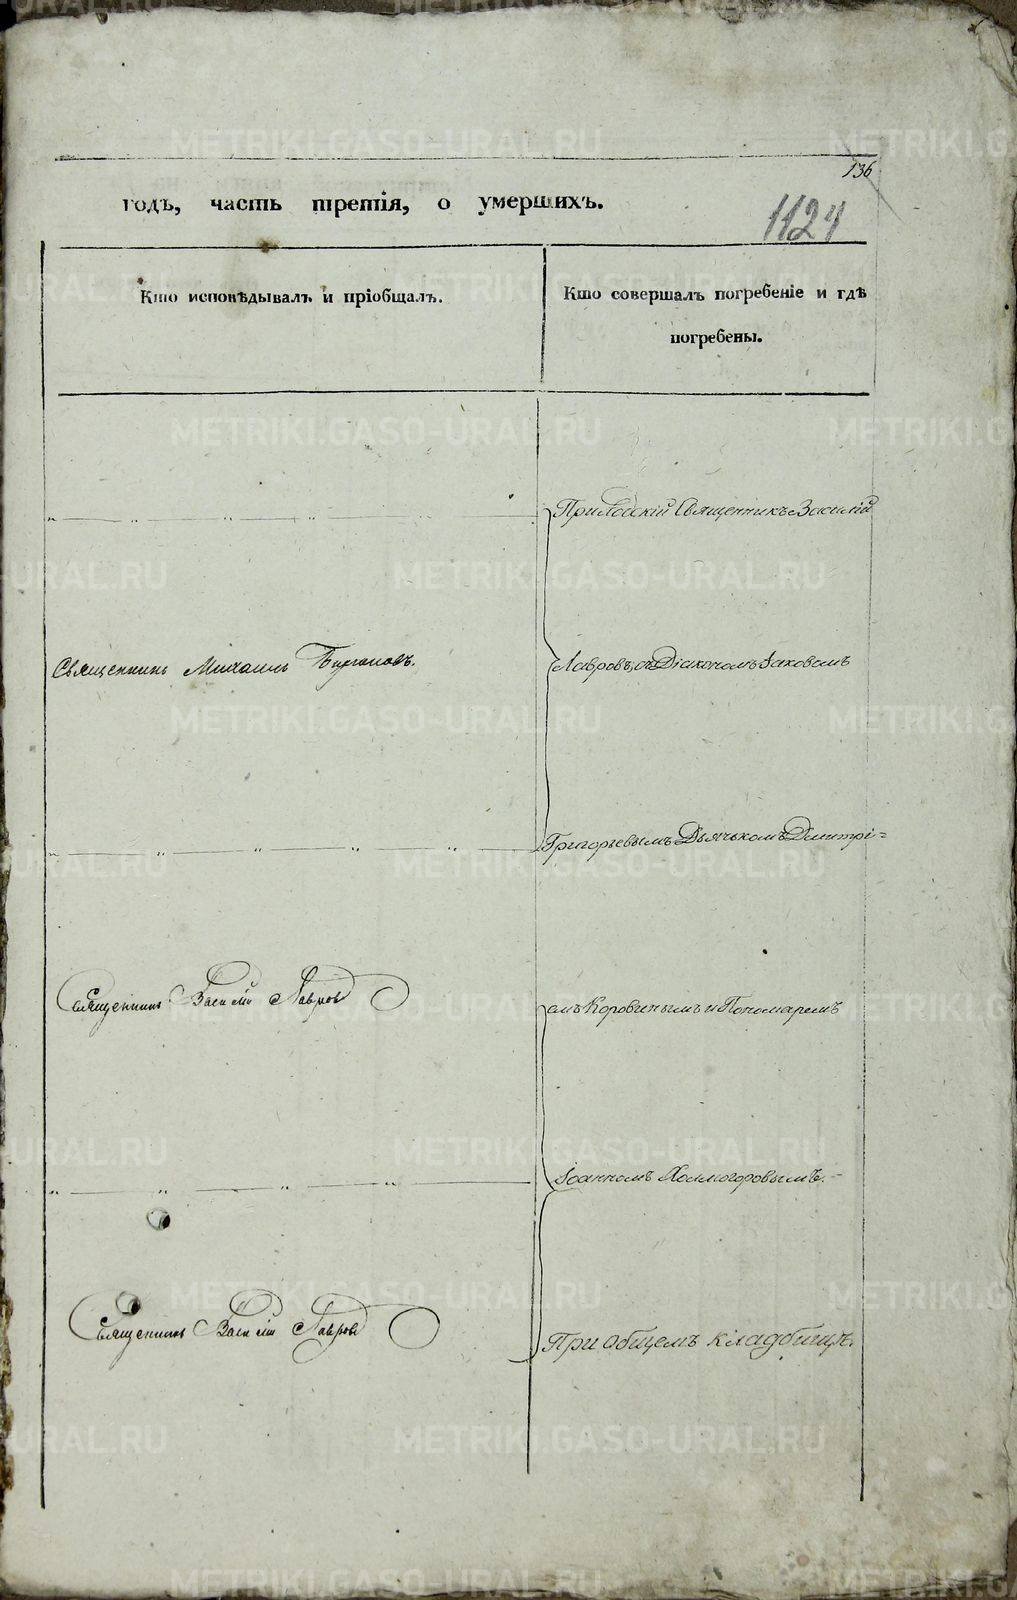 136
годъ, часть третія, о умершихъ.
1124
Кто исповѣдывалъ и пріобщалъ.
Кто совершалъ погребеніе и гдѣ
погребены.
Священникъ Михаилъ
Священникъ Василій Лавровъ
Священникъ Василій Лавровъ
Священникъ Василій
Лавровъ, съ Діакономъ Іаковомъ
Григорьевымъ Дьячькомъ Дмитрі=
емъ Коровинымъ и Пономаремъ
Іоанномъ Холмогоровымъ.
При общемъ кладбищѣ.
METRIKI.GASO-URAL.RU